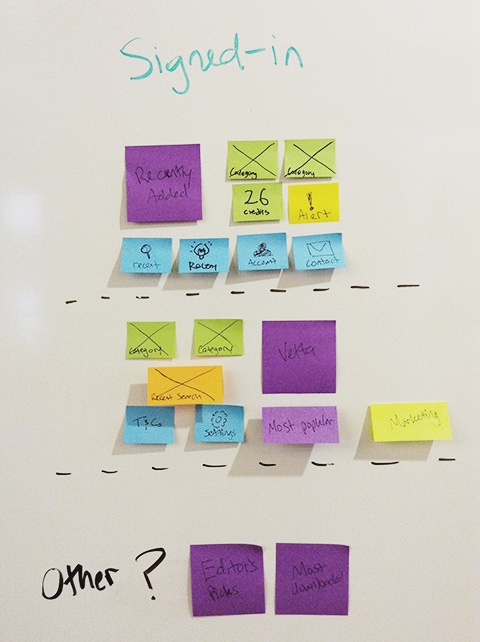 Signed-in
Recently
Added
Category
Category
26
credits
!
Alert
recent
Recent
Account
Contact
Category
Category
Vetta
Recent Search
T&Cs
Settings
Most popular
Marketing
Other ?
Editor's
Picks
Most
downloaded